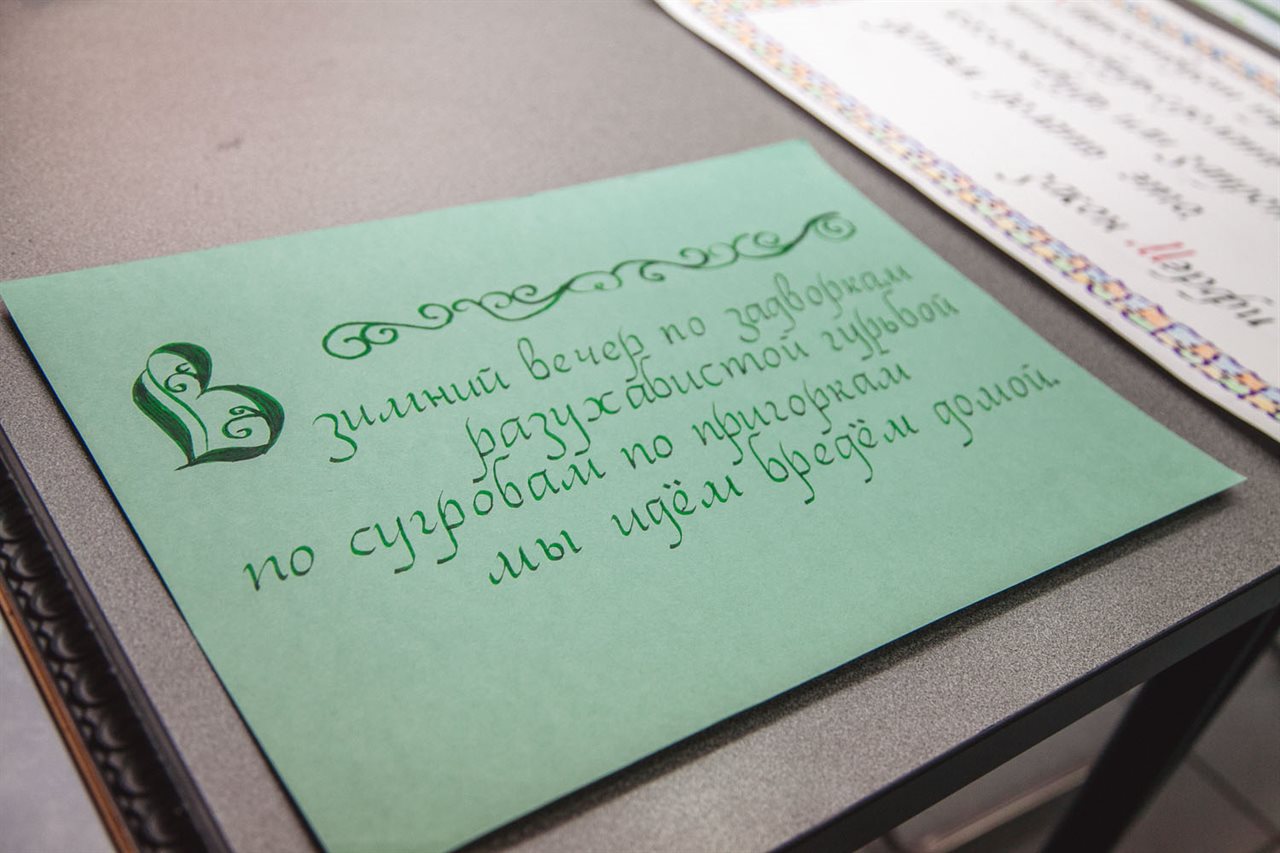 В зимний вечер по задворкам
разухабистой гурьбой
по сугробам по пригоркам
мы идём бредём домой.
закон Мэрфи